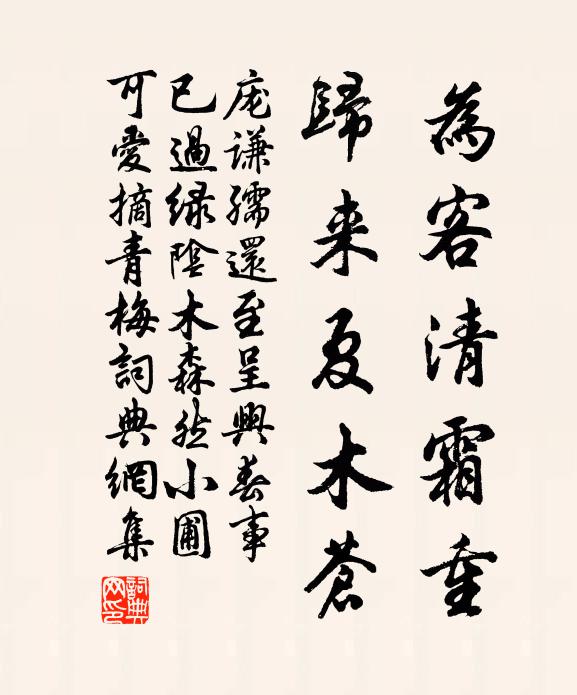 為客清霜重
歸来夏木蒼
庞谦孺還至呈興春事
已過緑陰木森然小圃
可愛摘青梅詞典網集
詞典网印